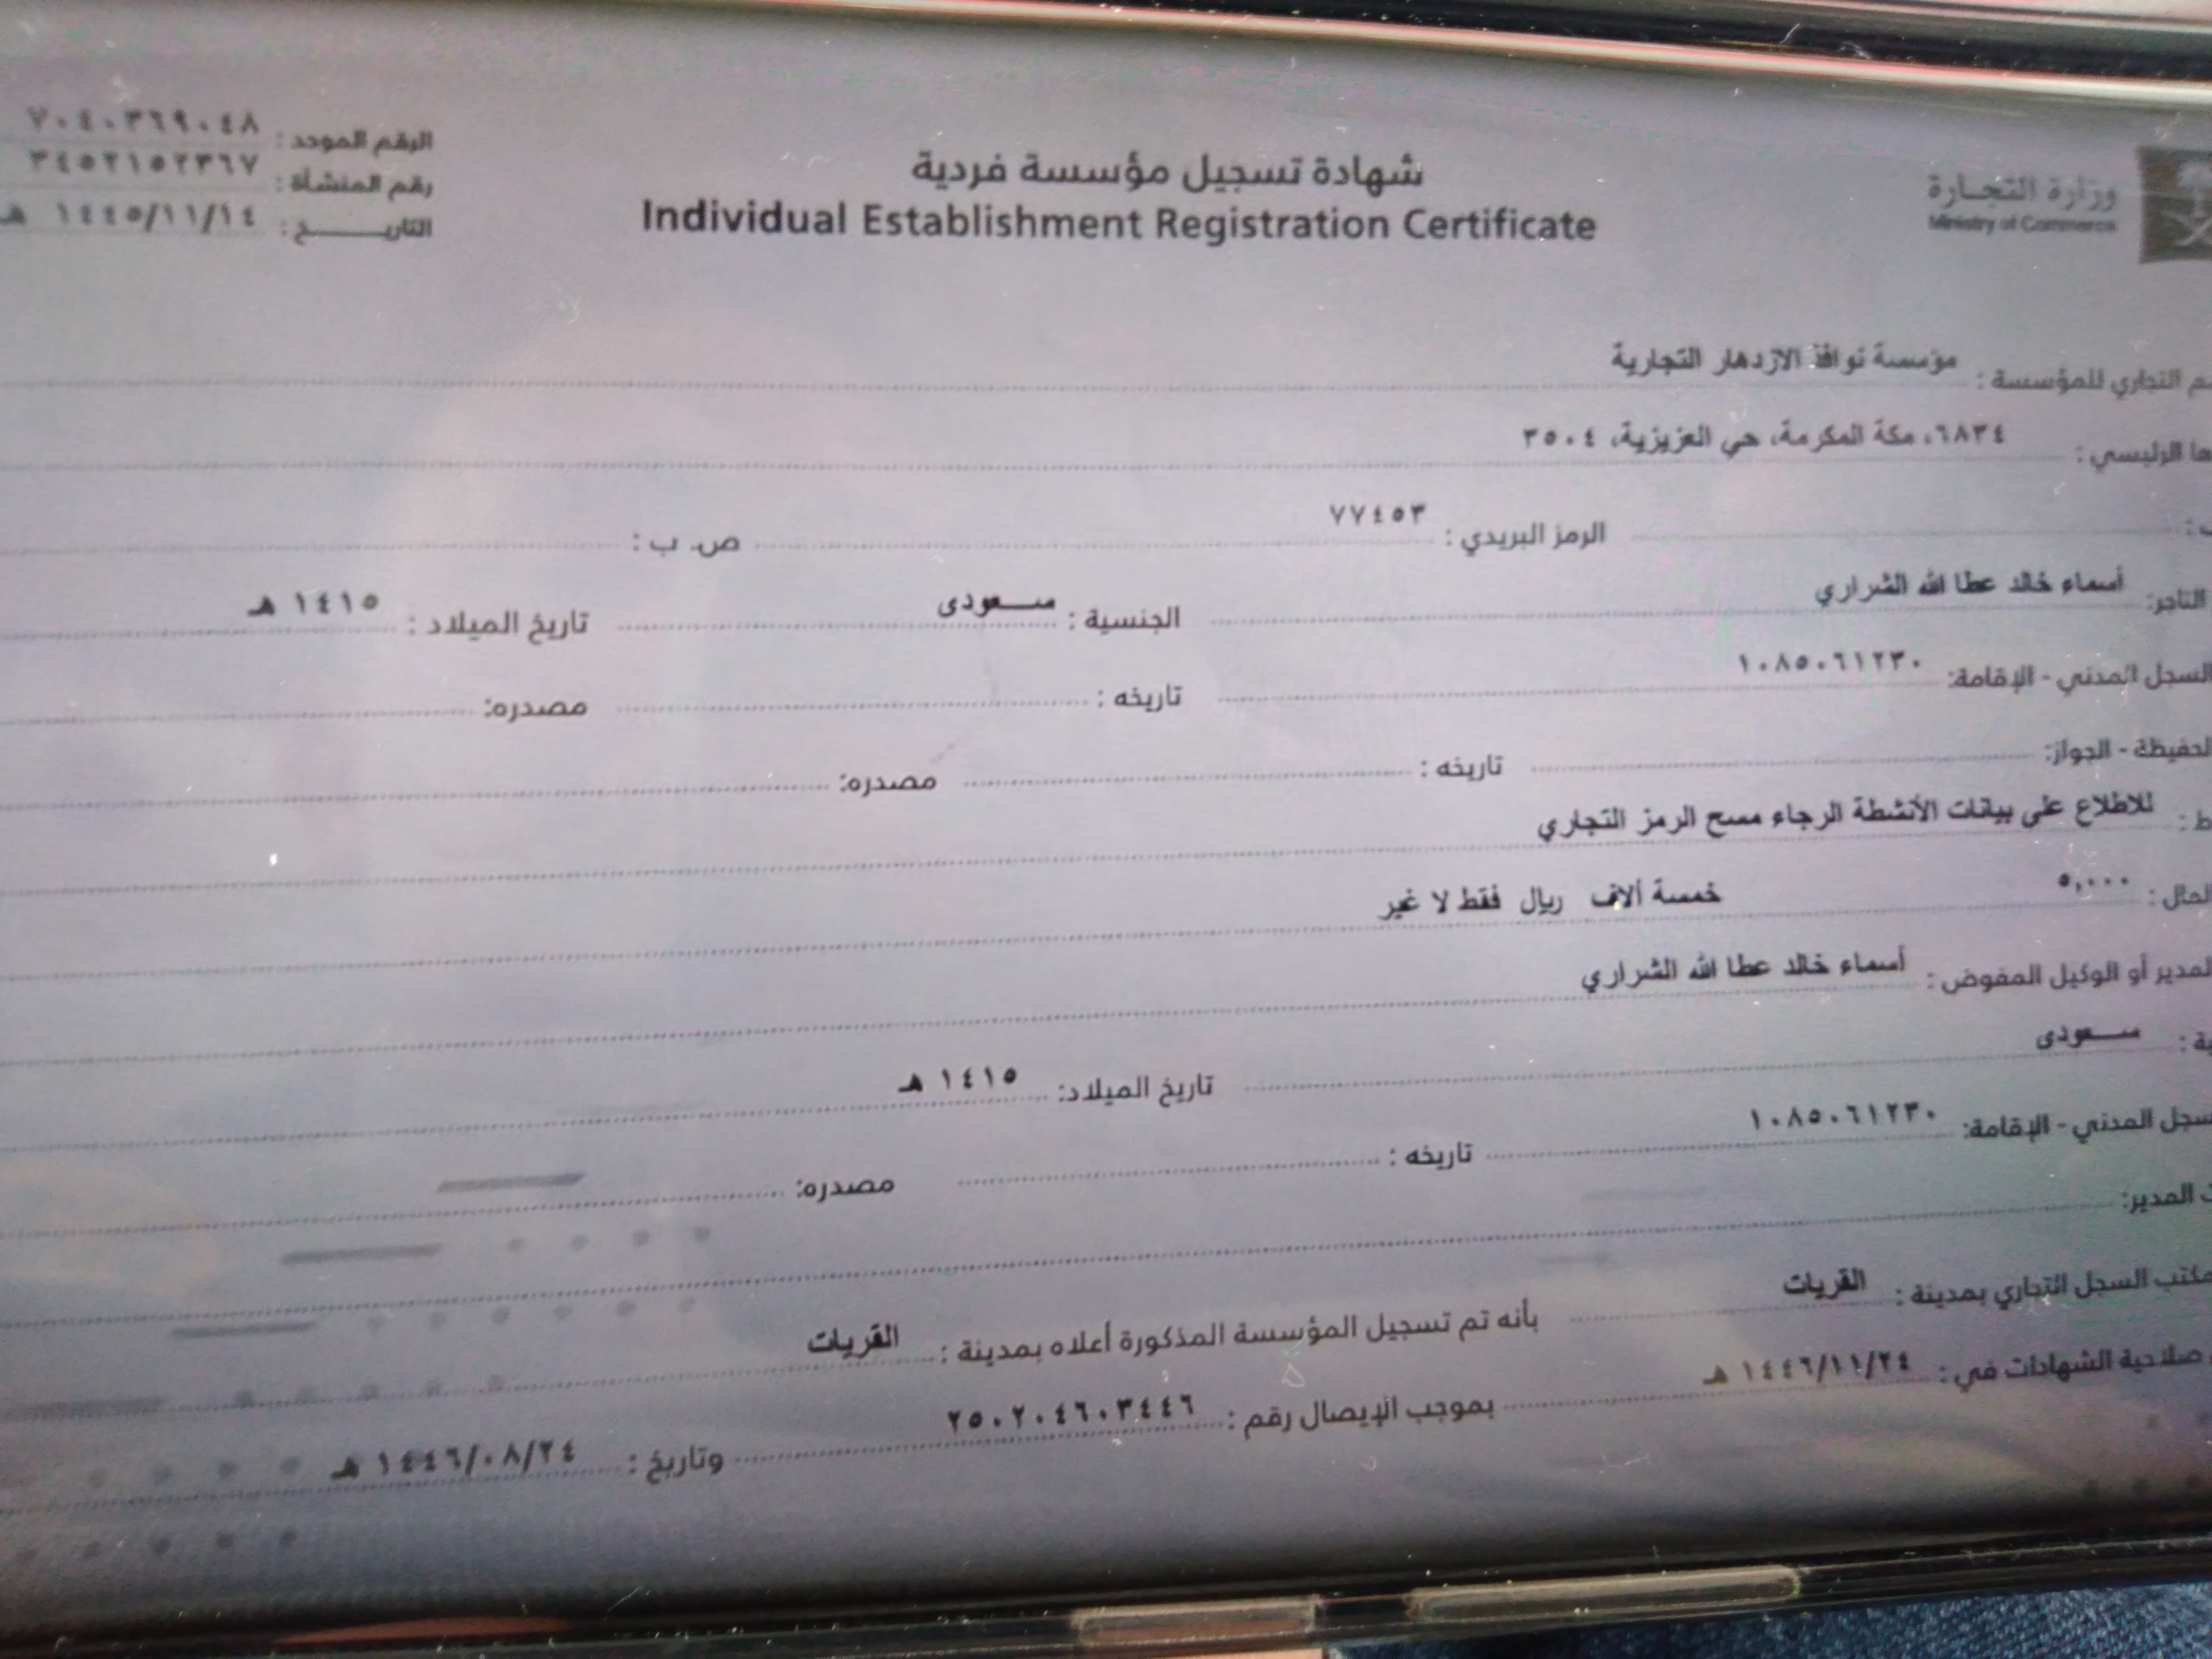 وزارة التجارة
Ministry of Commerce
شهادة تسجيل مؤسسة فردية
Individual Establishment Registration Certificate
الرقم الموحد : ٧٠٤٠٣٦٩٠٤٨
رقم المنشأة : ٣٤٥٢١٥٢٣٦٧
التاريـــــــخ : ١٤٤٥/١١/١٤ هـ
التجاري للمؤسسة : مؤسسة نوافذ الازدهار التجارية
الرئيسي : ٦٨٣٤، مكة المكرمة، حي العزيزية، ٣٥٠٤
الرمز البريدي : ٧٧٤٥٣ ص. ب :
التاجر: أسماء خالد عطا الله الشراري الجنسية : ســـعودى تاريخ الميلاد : ١٤١٥ هـ
السجل المدني - الإقامة: ١٠٨٥٠٦١٢٣٠ تاريخه : مصدره:
الحفيظة - الجواز: تاريخه : مصدره:
للاطلاع على بيانات الأنشطة الرجاء مسح الرمز التجاري
المال : ٥,٠٠٠ خمسة ألاف ريال فقط لا غير
المدير أو الوكيل المفوض : أسماء خالد عطا الله الشراري
ســـعودى تاريخ الميلاد: ١٤١٥ هـ
السجل المدني - الإقامة: ١٠٨٥٠٦١٢٣٠ تاريخه : مصدره:
المدير:
مكتب السجل التجاري بمدينة : القريات بأنه تم تسجيل المؤسسة المذكورة أعلاه بمدينة : القريات
صلاحية الشهادات في : ١٤٤٦/١١/٢٤ هـ بموجب الإيصال رقم : ٢٥٠٢٠٤٦٠٣٤٤٦ وتاريخ : ١٤٤٦/٠٨/٢٤ هـ